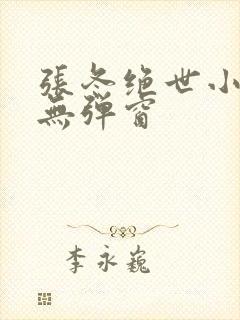 張冬绝世小
無弹窗
李永巍